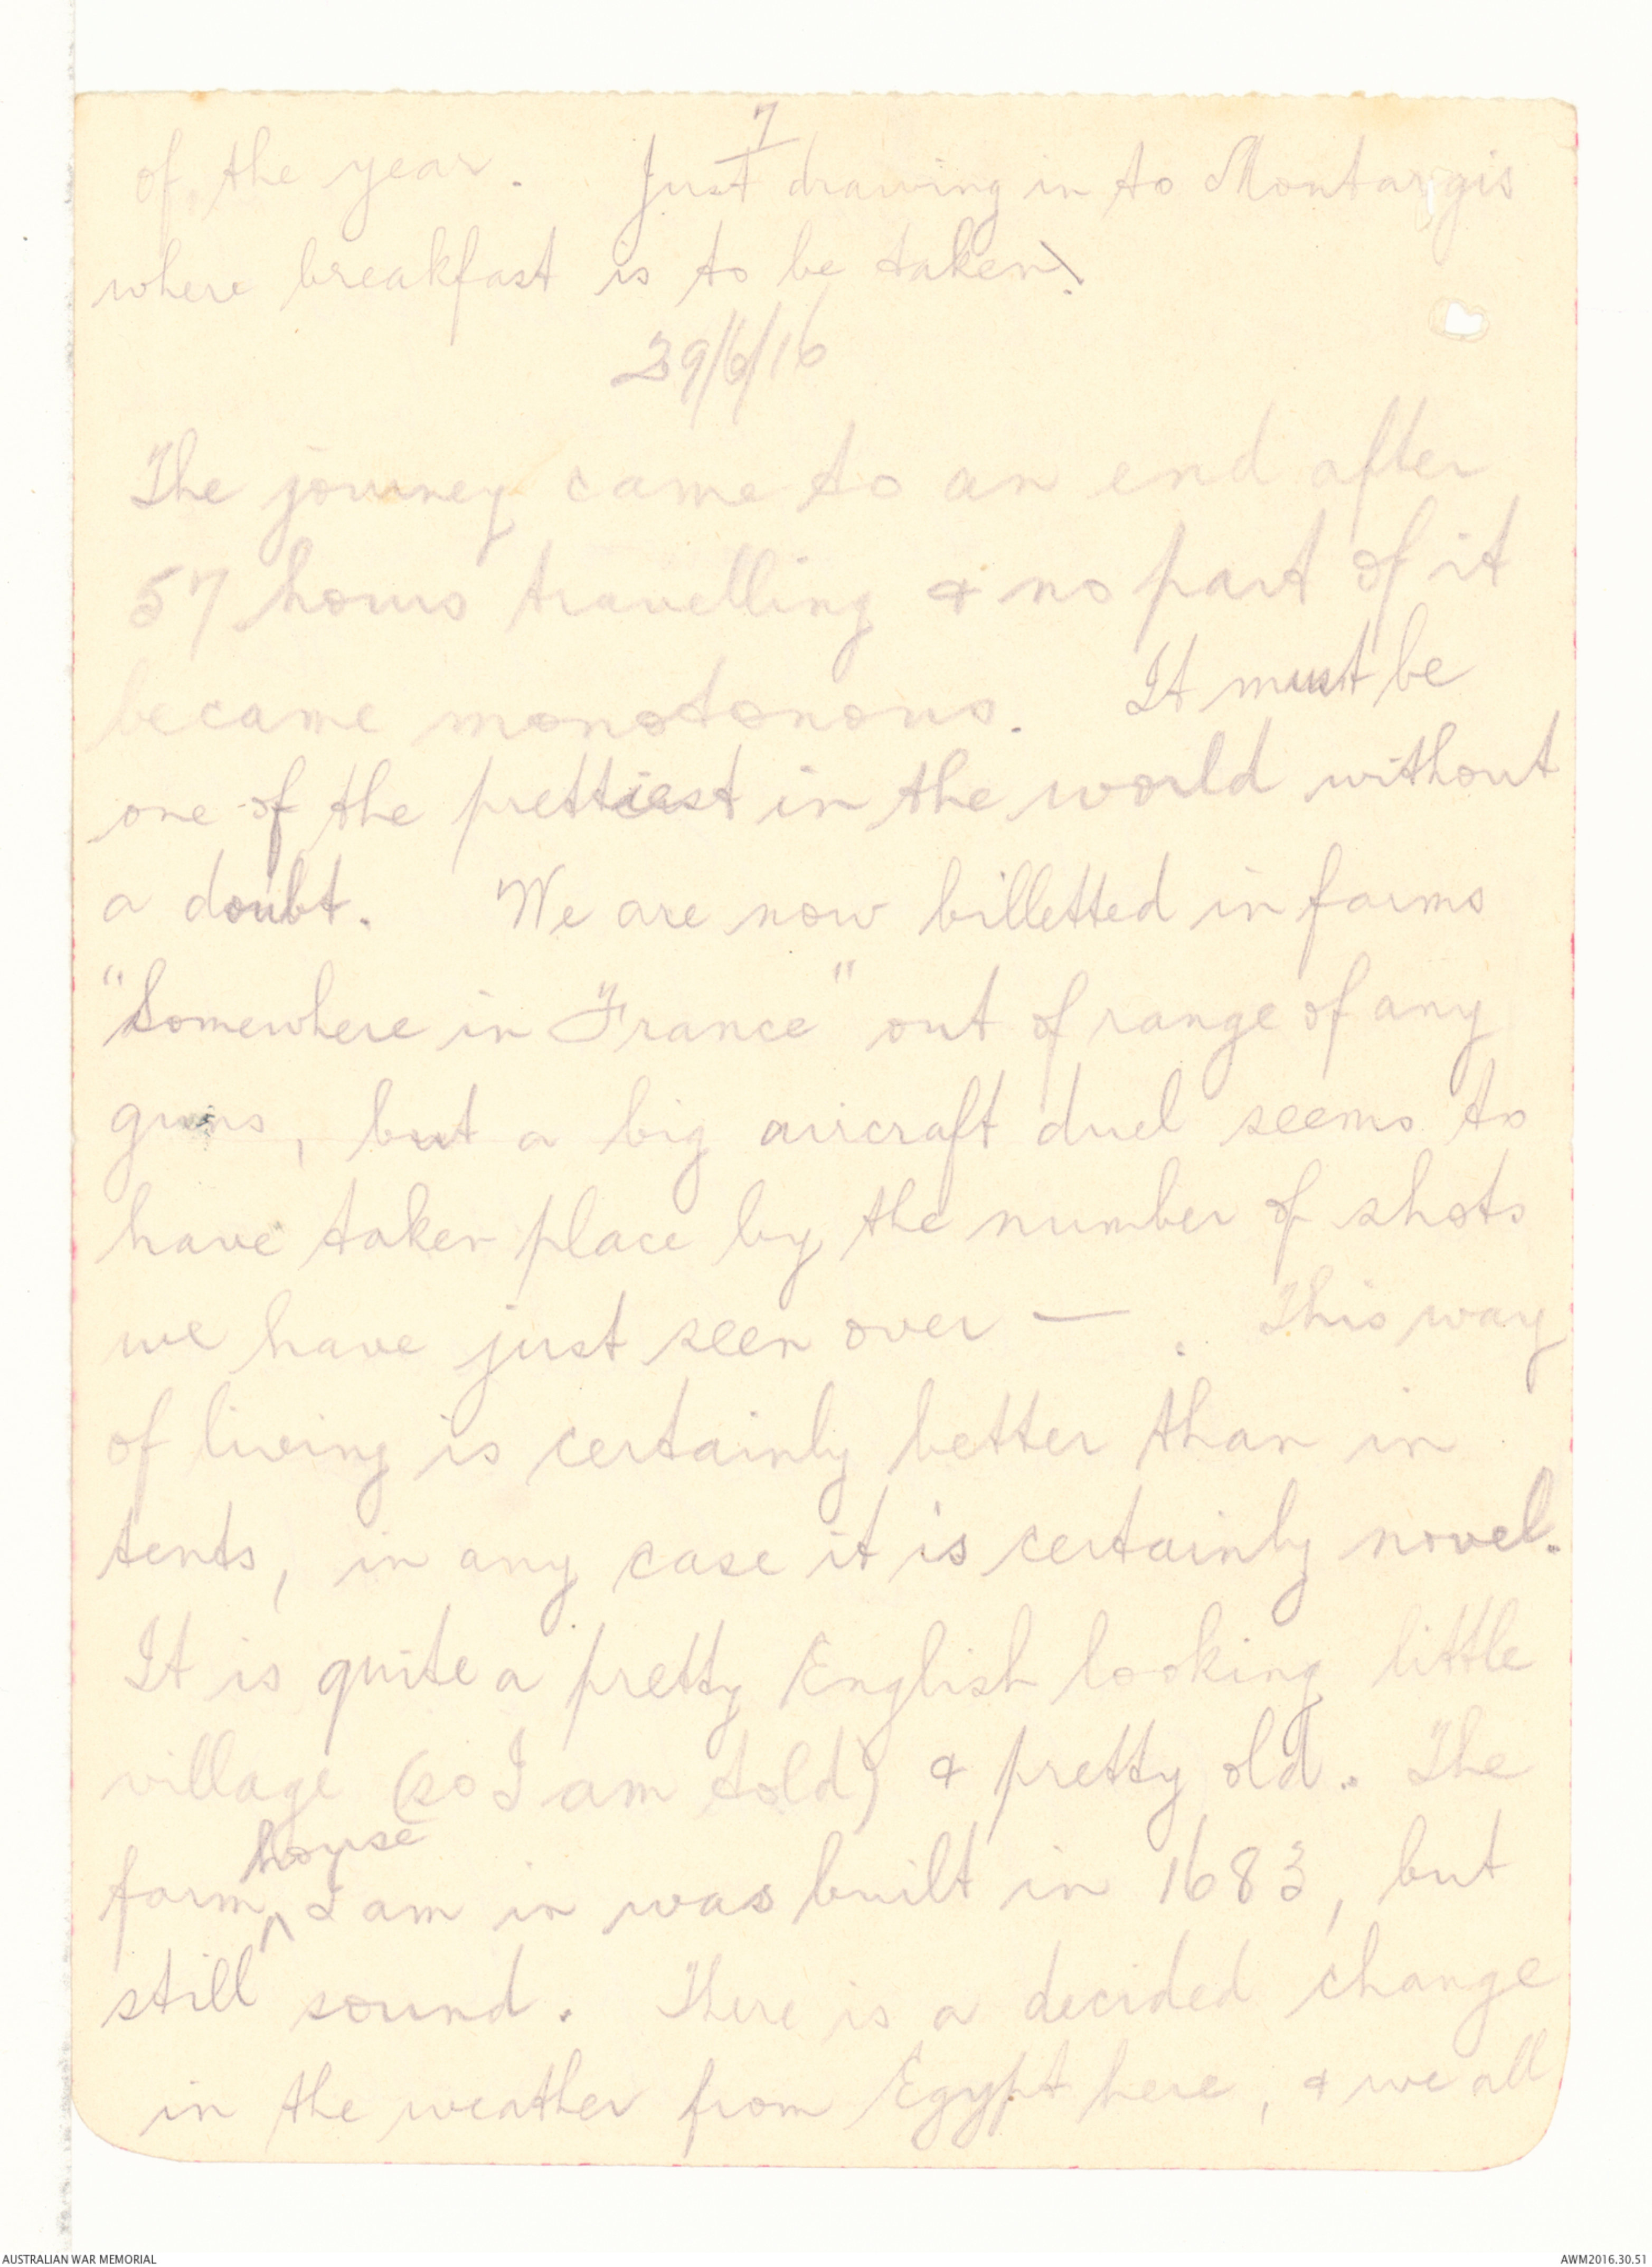 7
of the year. Just drawing in to Montargis
where breakfast is to be taken.
29/6/16
The journey came to an end after
57 hours travelling & no part of it
became monotonous. It must be
one of the prettiest in the world without
a doubt. We are now billetted in farms
"Somewhere in France" out of range of any
guns, but a big aircraft duel seems to
have taken place by the number of shots
we have just seen over — . This way
of living is certainly better than in
tents, in any case it is certainly novel.
It is quite a pretty English looking little
village (so I am told) & pretty old. The
house
farm ^ I am in was built in 1683, but
still sound. There is a decided change
in the weather from Egypt here, & we all
AUSTRALIAN WAR MEMORIAL
AWM2016.30.51